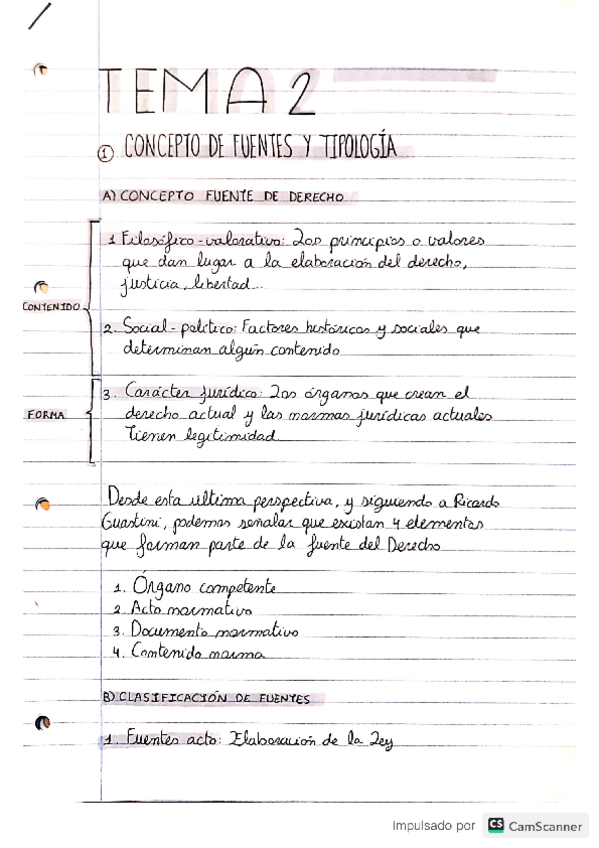 TEMA 2
1 CONCEPTO DE FUENTES Y TIPOLOGÍA
A) CONCEPTO FUENTE DE DERECHO
1. Filosófico-valorativo: Los principios o valores
que dan lugar a la elaboración del derecho,
justicia, libertad...
CONTENIDO
2. Social-político: Factores históricos y sociales que
determinan algún contenido
3. Carácter jurídico: Los órganos que crean el
FORMA
derecho actual y las normas jurídicas actuales
tienen legitimidad
Desde esta última perspectiva, y siguiendo a Ricardo
Guastini, podemos señalar que existan 4 elementos
que forman parte de la fuente del Derecho
1. Órgano competente
2. Acto normativo
3. Documento normativo
4. Contenido norma
B) CLASIFICACIÓN DE FUENTES
1. Fuentes acto: Elaboración de la Ley
Impulsado por CS CamScanner